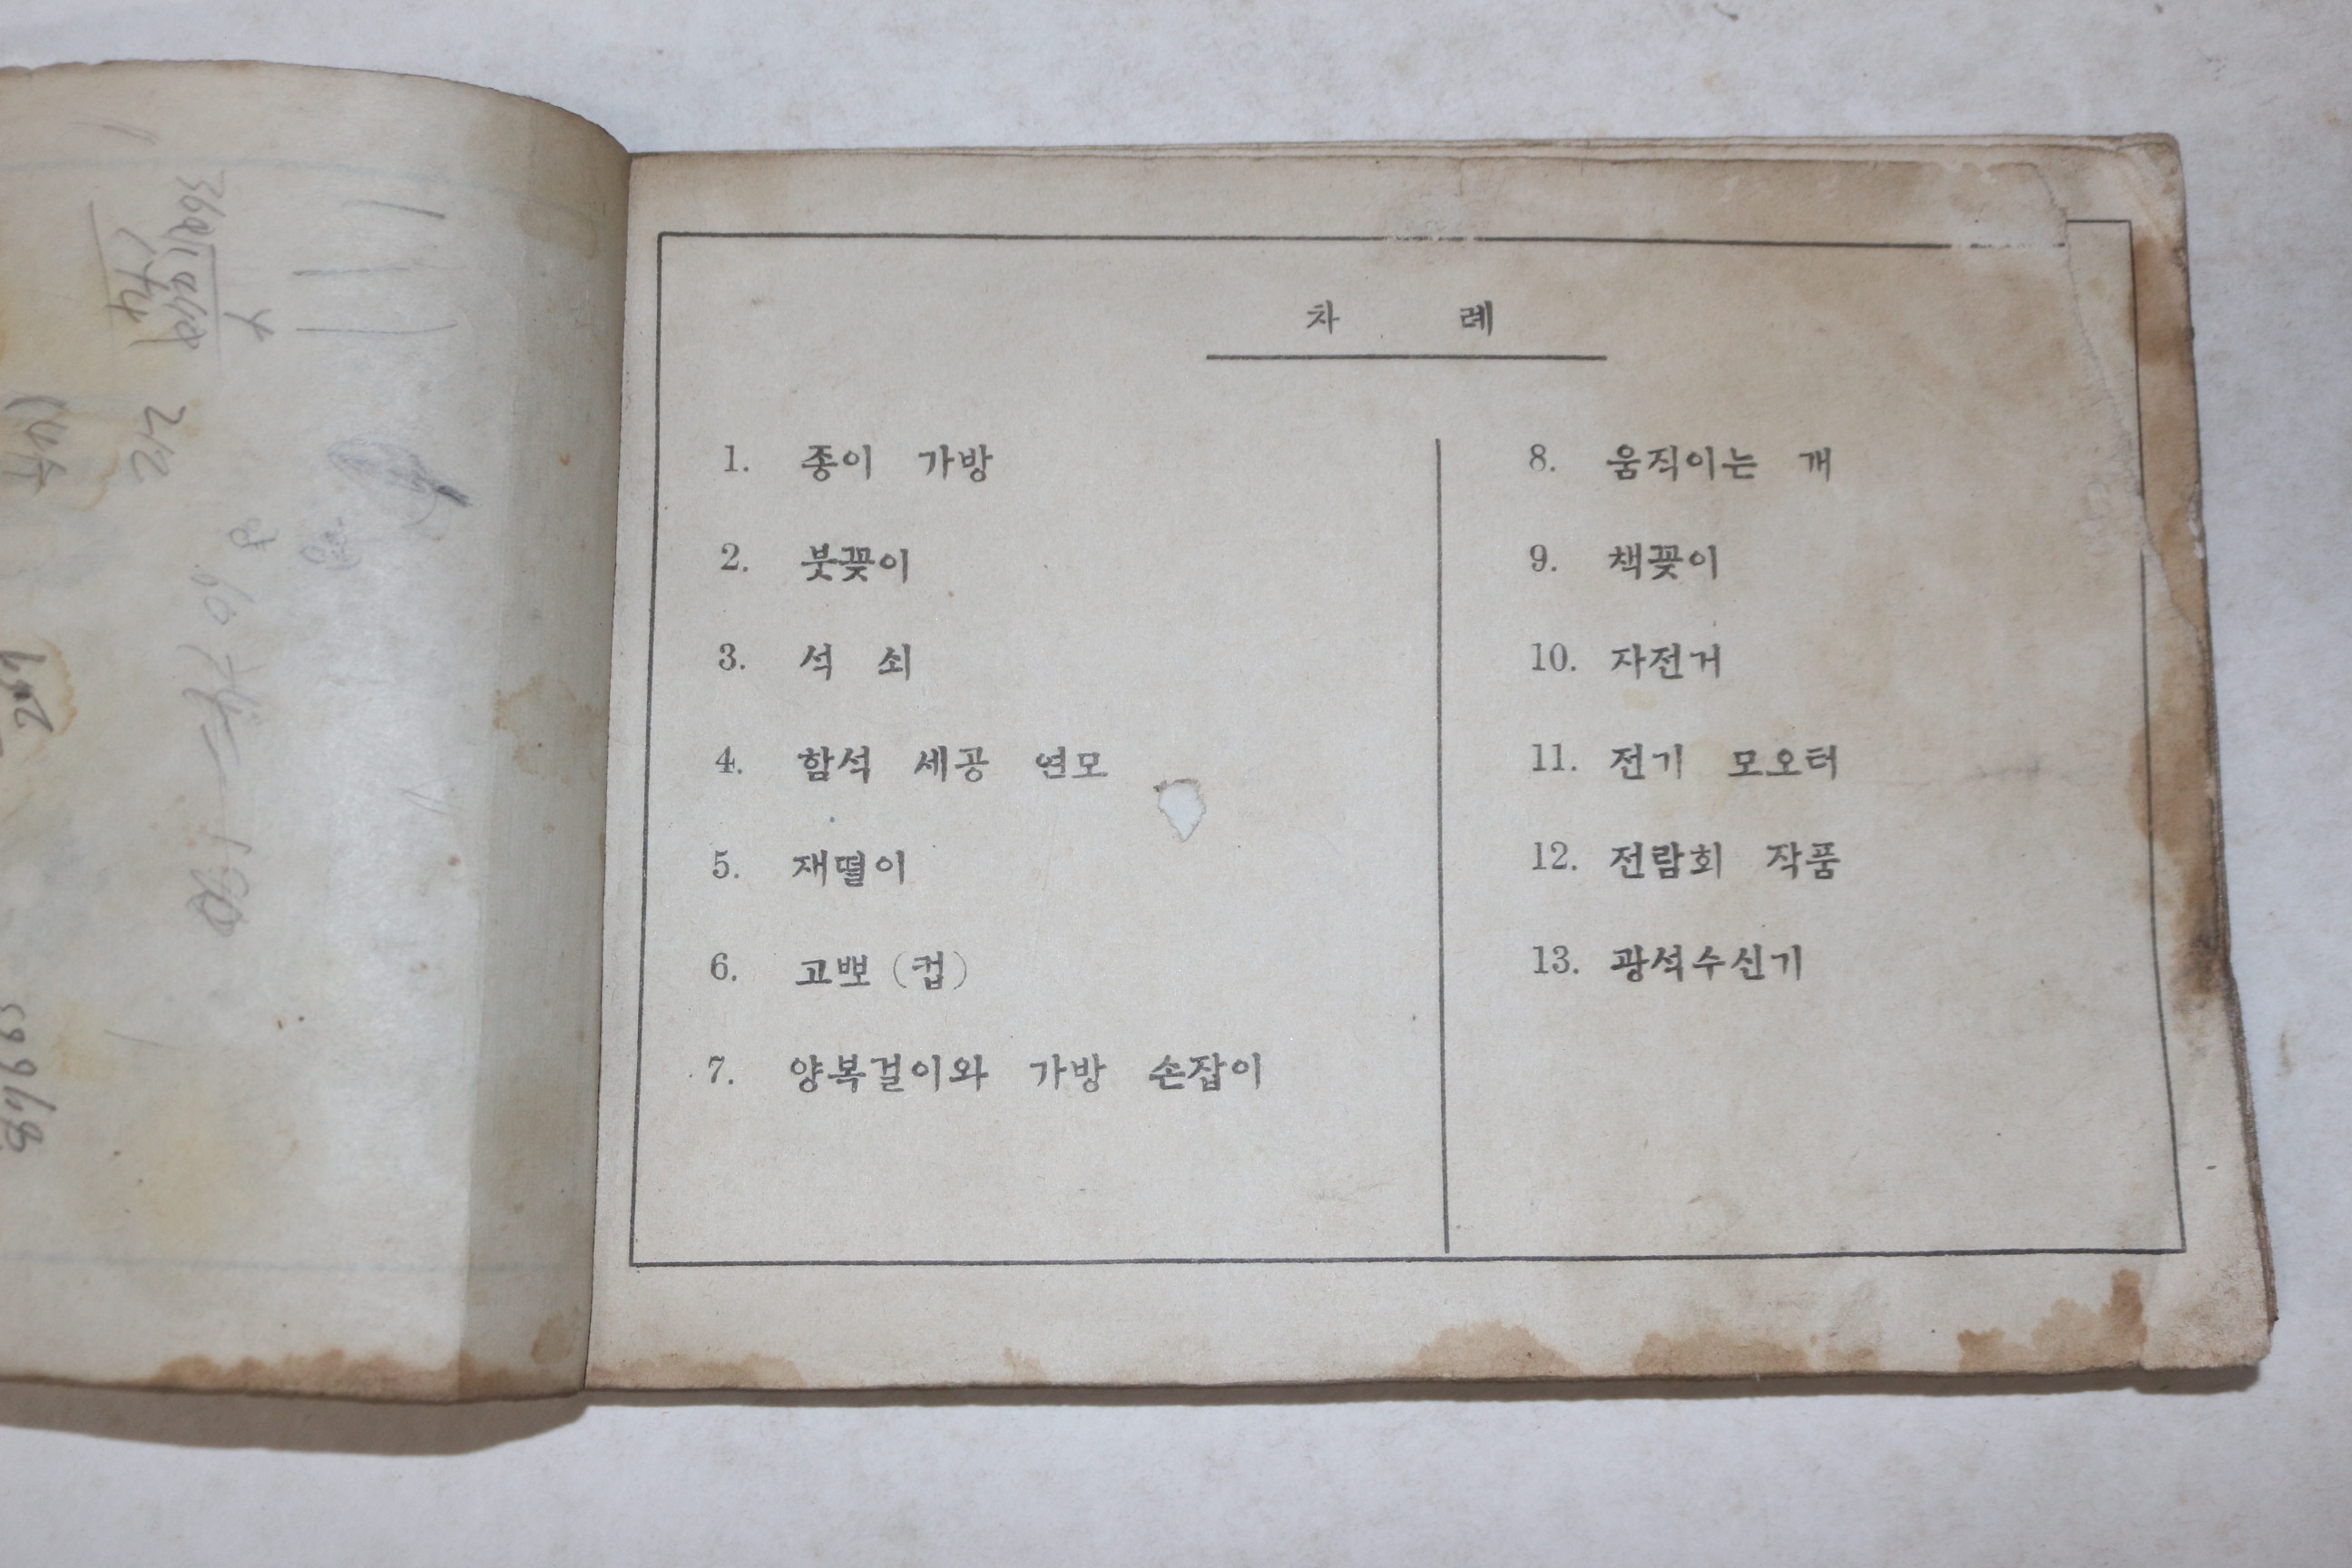 차 례
1. 종이 가방
2. 붓꽂이
3. 석 쇠
4. 함석 세공 연모
5. 재떨이
6. 고뽀 (컵)
7. 양복걸이와 가방 손잡이
8. 움직이는 개
9. 책꽂이
10. 자전거
11. 전기 모오터
12. 전람회 작품
13. 광석수신기